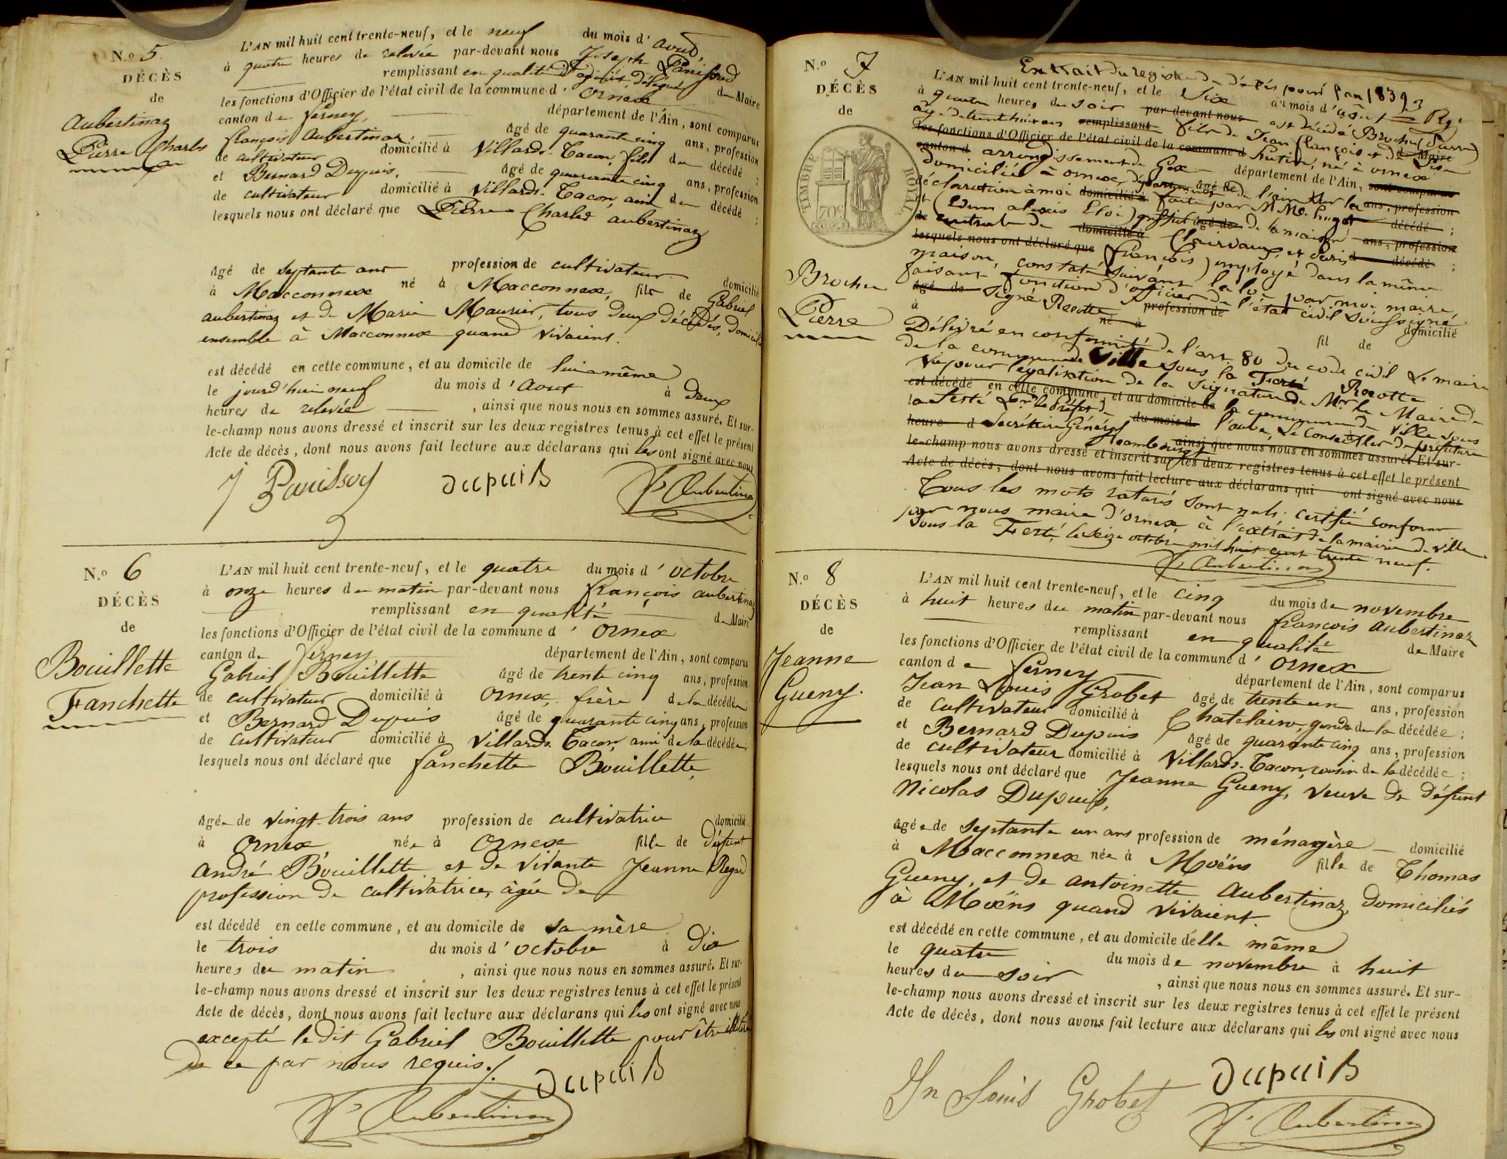 N.o 5
DÉCÈS
de
Aubertinaz
Pierre Charles
L'AN mil huit cent trente-neuf, et le neuf du mois d'aout
à quatre heures de relevée par-devant nous Joseph
remplissant en qualité d'adjoint délégué de Maire
les fonctions d'Officier de l'état civil de la commune d'Ornex
canton de ferney, département de l'Ain, sont comparus
françois Aubertinaz âgé de quarante cinq ans, profession
de cultivateur domicilié à Villards-Tacon, fils du décédé ;
et Bernard Dupuis, âgé de quarante cinq ans, profession
de cultivateur domicilié à Villards-Tacon, ami du décédé ;
lesquels nous ont déclaré que Pierre Charles aubertinaz
âgé de septante ans profession de cultivateur domicilié
à Macconnex né à Macconnex, fils de Gabriel
aubertinaz et de Marie Maurier, tous deux décédés, domiciliés
ensemble à Macconnex quand vivaient.
est décédé en cette commune, et au domicile de lui même
le jourd'hui neuf du mois d'aout à deux
heures de relevée, ainsi que nous nous en sommes assuré. Et sur-
le-champ nous avons dressé et inscrit sur les deux registres tenus à cet effet le présent
Acte de décès, dont nous avons fait lecture aux déclarans qui les ont signé avec nous
Dupuis
f. Aubertinaz
N.o 6
DÉCÈS
de
Bouillette
Fanchette
L'AN mil huit cent trente-neuf, et le quatre du mois d'octobre
à onze heures du matin par-devant nous françois aubertinaz
remplissant en qualité de Maire
les fonctions d'Officier de l'état civil de la commune d'Ornex
canton de ferney département de l'Ain, sont comparus
Gabriel Bouillette âgé de trente cinq ans, profession
de cultivateur domicilié à Ornex, frère de la décédée
et Bernard Dupuis âgé de quarante cinq ans, profession
de cultivateur domicilié à Villards-Tacon, ami de la décédée
lesquels nous ont déclaré que fanchette Bouillette,
âgée de vingt-trois ans profession de cultivatrice domicilié
à Ornex née à Ornex fille de défunt
andré Bouillette et de vivante Jeanne Regard
profession de cultivatrice, âgée de
est décédé en cette commune, et au domicile de sa mère
le trois du mois d'octobre à Dix
heures du matin, ainsi que nous nous en sommes assuré. Et sur-
le-champ nous avons dressé et inscrit sur les deux registres tenus à cet effet le présent
Acte de décès, dont nous avons fait lecture aux déclarans qui les ont signé avec nous
excepté le dit Gabriel Bouillette pour être illétré
de ce par nous requis.
Dupuis
f. Aubertinaz
N.o 7
DÉCÈS
de
TIMBRE ROYAL
70c
Brocher
Pierre
Extrait du registre de décès pour l'an 1839
L'AN mil huit cent trente-neuf, et le Six du mois d'août
à quatre heures du soir par-devant nous est décédé Brocher (Pierre)
âgé de trente huit ans remplissant fils de Jean françois et de de Maire
les fonctions d'Officier de l'état civil de la commune d
canton d arrondissement de Gex département de l'Ain, sont comparus
domicilié à ornex, département âgé de de l'ain Sur la ans, profession
déclaration à moi domicilié à faite par M.M. décédé ;
et (Edme alexis Eloi) âgé de de la maison ans, profession
de centrale de domicilié à Clairvaux, et décédé ;
lesquels nous ont déclaré que (françois) employé dans la même
maison, constaté suivant la loi par moi, maire,
faisant fonction d'officier de l'état civil soussigné
âgé de Signé Rozotte profession de domicilié
à né à fil de
Délivré en conformité de l'art. 80 du code civil Le maire
de la commune de Ville sous la Ferté Rozotte
Vu pour légalisation de la signature de Mr. le Maire de
est décédé en cette commune, et au domicile de la commune de Ville sous
la ferté Pr. le Préfet de du mois d l'aube, Le Conseiller de préfecture
heure d Secrétaire Général ainsi que nous nous en sommes assuré. Et sur-
le-champ nous avons dressé et inscrit sur les deux registres tenus à cet effet le présent
Acte de décès, dont nous avons fait lecture aux déclarans qui ont signé avec nous
Tous les mots raturés sont nuls. certifié conforme
par nous maire d'ornex à l'extrait de la mairie de Ville
sous la Ferté, le seize octobre mil huit cent trente neuf.
f. Aubertinaz
N.o 8
DÉCÈS
de
Jeanne
Gueny.
L'AN mil huit cent trente-neuf, et le cinq du mois de novembre
à huit heures du matin par-devant nous françois aubertinaz
remplissant en qualité de Maire
les fonctions d'Officier de l'état civil de la commune d'ornex
canton de ferney département de l'Ain, sont comparus
Jean Louis Grobet âgé de trente un ans, profession
de cultivateur domicilié à Chatelaine, gendre de la décédée ;
et Bernard Dupuis âgé de quarante cinq ans, profession
de cultivateur domicilié à Villards-Tacon, cousin de la décédée ;
lesquels nous ont déclaré que Jeanne Gueny, veuve de défunt
Nicolas Dupuis,
âgée de septante un ans profession de ménagère domicilié
à Macconnex née à Moëns fille de Thomas
Gueny, et de antoinette Aubertinaz, domiciliés
à Moëns quand vivaient
est décédé en cette commune, et au domicile d'elle même
le quatre du mois de novembre à huit
heures du soir, ainsi que nous nous en sommes assuré. Et sur-
le-champ nous avons dressé et inscrit sur les deux registres tenus à cet effet le présent
Acte de décès, dont nous avons fait lecture aux déclarans qui les ont signé avec nous
Jn Louis Grobet
Dupuis
f. Aubertinaz